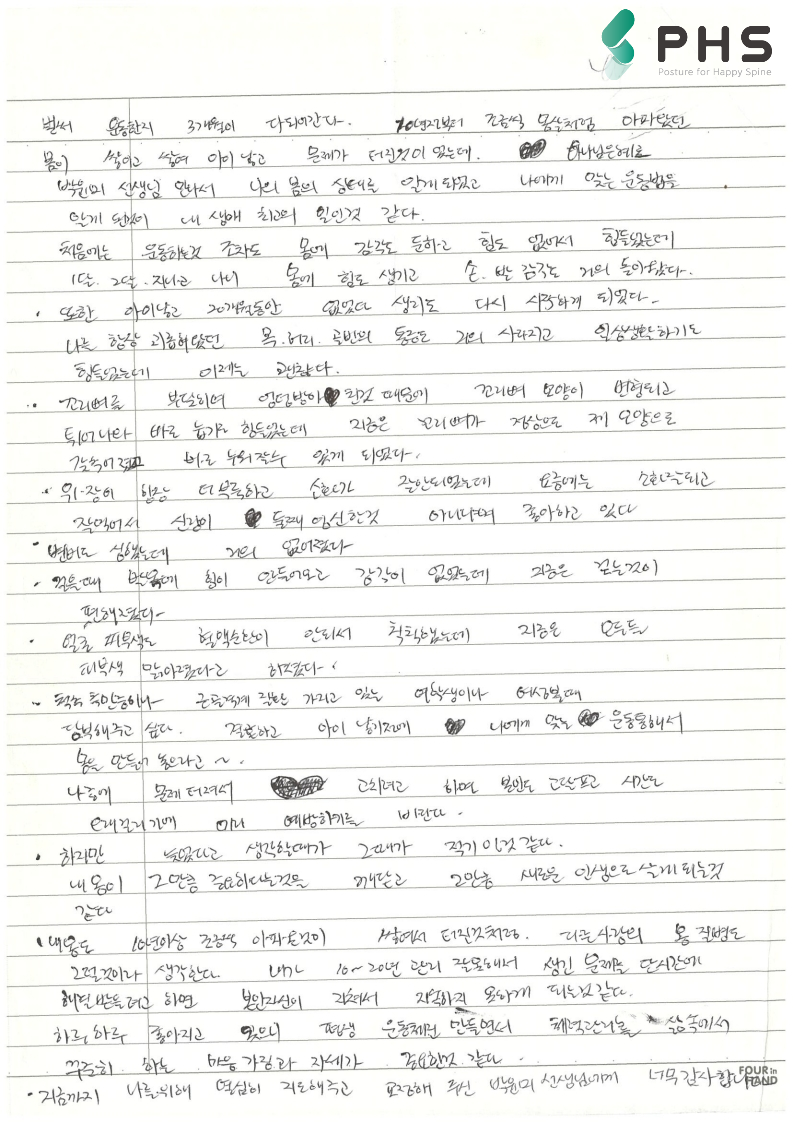 PHS
Posture for Happy Spine
벌써 운동한지 3개월이 다되어간다. 10년전부터 조금씩 몸살처럼 아파왔던
몸이 쌓이고 쌓여 아이 낳고 문제가 터진것이 있는데. 하나님은혜로
박원미 선생님 만나서 나의 몸의 상태를 알게 되었고 나에게 맞는 운동법을
알게 된것이 내 생애 최고의 일인것 같다.
처음에는 운동하는것 조차도 몸에 감각도 둔하고 힘도 없어서 힘들었는데
1달. 2달. 지나고 나니 몸에 힘도 생기고 손. 발 감각도 거의 돌아왔다.
· 또한 아이낳고 20개월동안 없었다 생리도 다시 시작하게 되었다-
나를 항상 괴롭혀왔던 목.허리.골반의 통증도 거의 사라지고 일상생활하기도
힘들었는데 이제는 괜찮다.
·· 꼬리뼈를 부딪히며 엉덩방아 찐것 때문에 꼬리뼈 모양이 변형되고
튀어나와 바로 눕기도 힘들었는데 지금은 꼬리뼈가 정상으로 제 모양으로
바로 누워잘수 있게 되었다.
· 위.장이 항상 더부룩하고 소화가 잘안되었는데 요즘에는 소화잘되고
잘먹어서 신랑이 둘째 임신한것 아니냐며 좋아하고 있다
· 변비도 심했는데 거의 없어졌다-
· 걸을때 발목에 힘이 안들어오고 감각이 없었는데 지금은 걷는것이
편해졌다-
· 얼굴 피부색도 혈액순환이 안되서 칙칙했는데 지금은 모든들
피부색 맑아졌다고 하셨다-.
~ 척추측만증이나 근골격계 질환 가지고 있는 여학생이나 여성볼때
당부해주고 싶다. 결혼하고 아이 낳기전에 나에게 맞는 운동통해서
몸을 만들어 놓으라고 ~.
나중에 문제 터져서 고치려고 하면 본인도 고달프고 시간도
오래걸리기에 미리 예방하기를 바란다.
· 하지만 늦었다고 생각할때가 그때가 적기 인것 같다.
내 몸이 그만큼 중요하다는것을 깨닫고 그만큼 새로운 인생으로 살게 되는것
같다
· 내몸도 10년이상 조금씩 아파온것이 쌓여서 터진것처럼. 다른사람의 몸 질병도
그럴것이라 생각한다. 내가 10~20년 관리 잘못해서 생긴 문제를 단시간에
해결 받을려고 하면 본인자신이 지쳐서 지속하지 못하게 되는것 같다.
하루, 하루 좋아지고 있으니 평생 운동체질 만들면서 체력관리를 삶속에서
꾸준히 하는 마음 가짐과 자세가 중요한것 같다.
· 지금까지 나를위해 열심히 지도해주고 교정해 주신 박원미 선생님에게 너무 감사합니다
FOUR in HAND